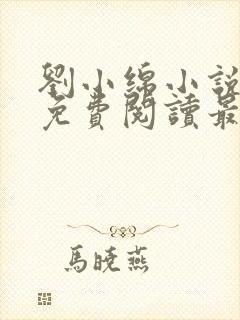 劉小綿小說
免費閱讀最
馬曉燕